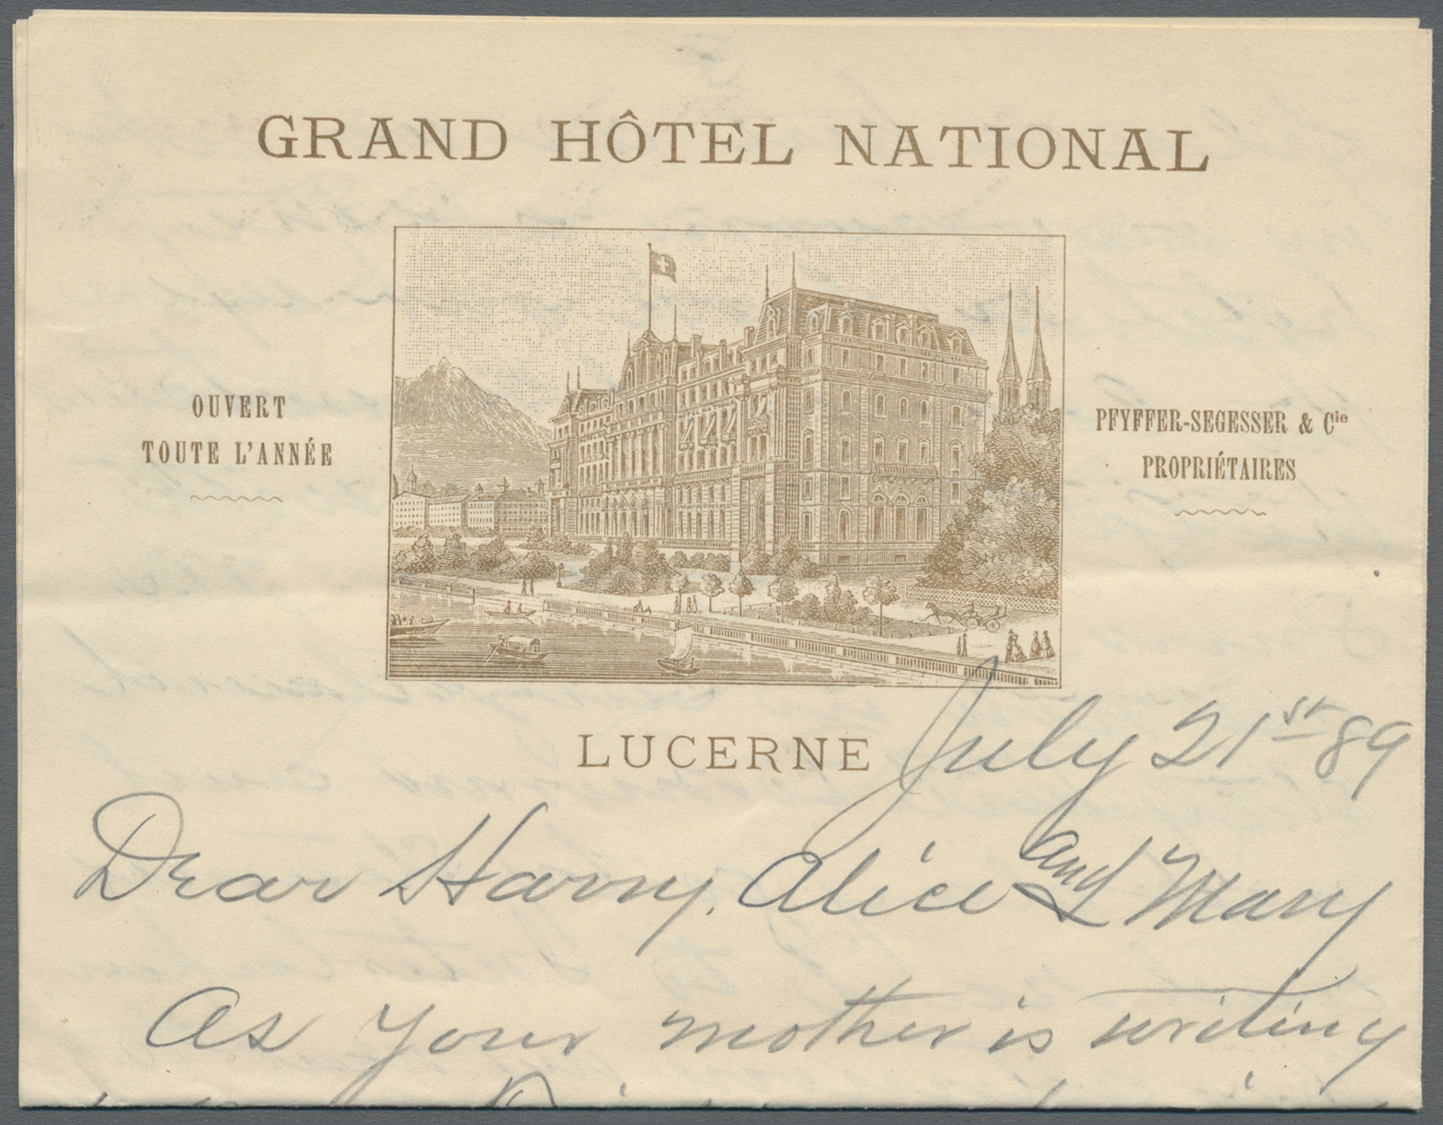 GRAND HÔTEL NATIONAL
OUVERT
TOUTE L'ANNÉE
PFYFFER-SEGESSER & Cie
PROPRIÉTAIRES
LUCERNE
July 21st 89
Dear Harry, Alice and Mary
As your mother is writing